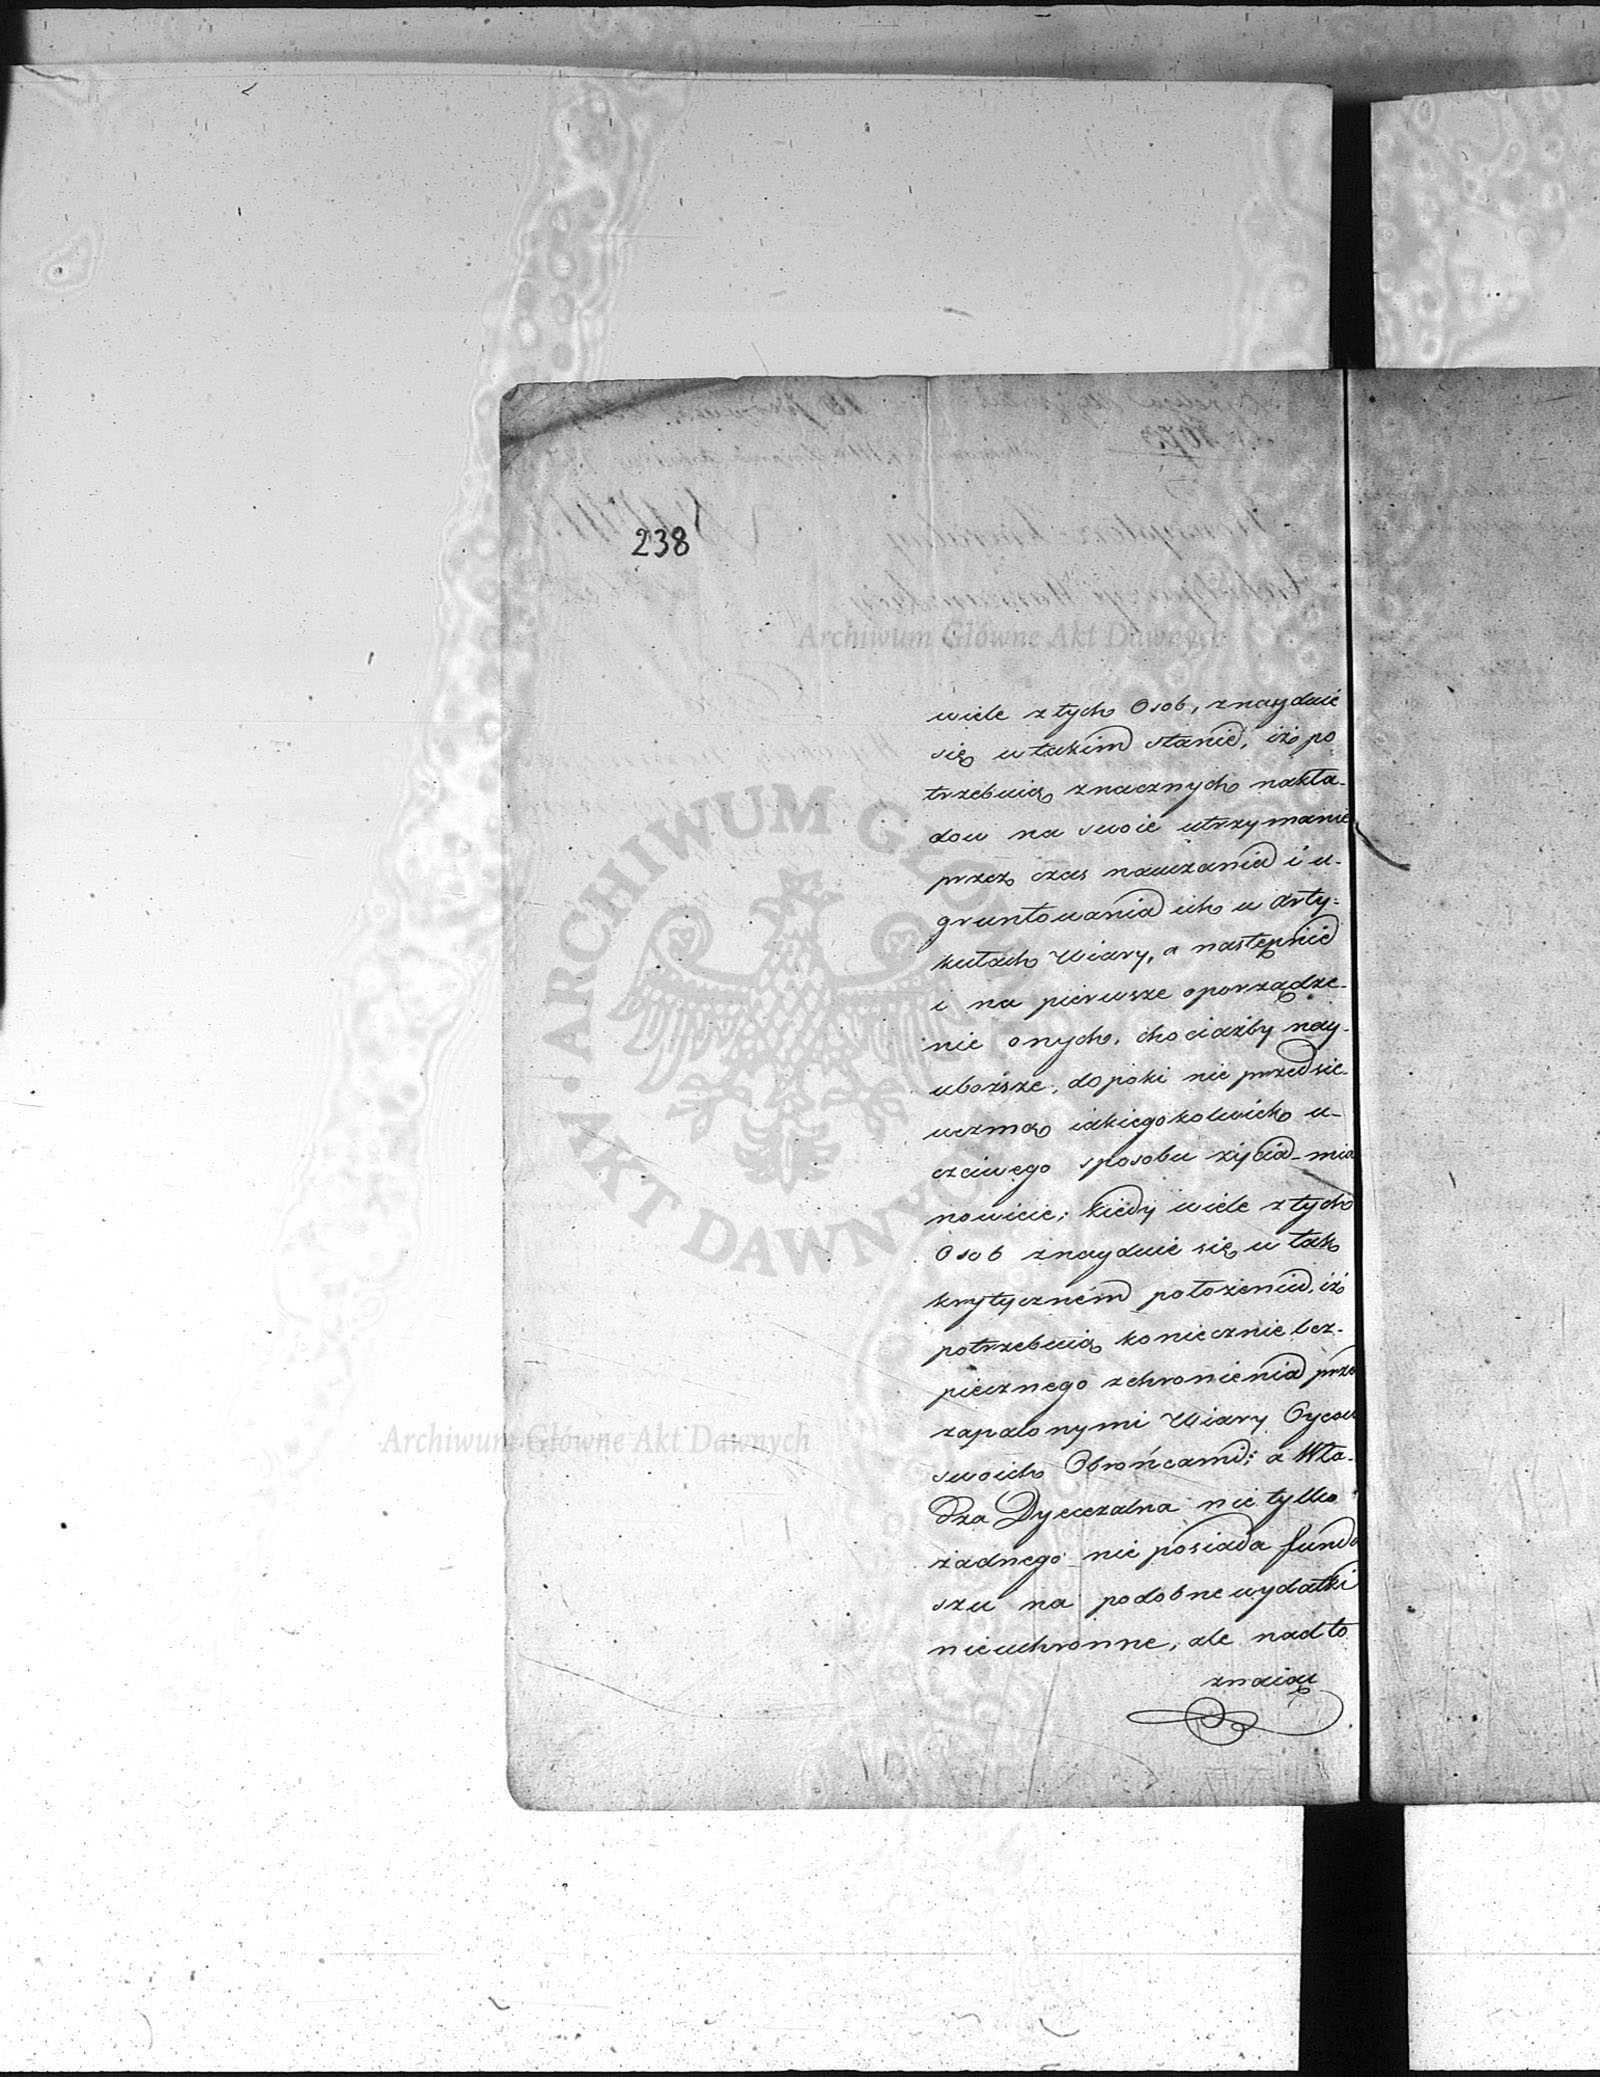 238
wiele z tych Osob, znayduie
się w takim stanie, iż po
trzebuią znacznych nakła-
dow na swoie utrzymanie
przez czas nauczania i u-
gruntowania ich w Arty-
kułach Wiary, a następnie
i na pierwsze oporządze-
nie onych, chociażby nay-
uboższe, dopoki nie przedsie-
wezmą iakiegokolwiek u-
czciwego sposobu życia - mia
nowicie; kiedy wiele z tych
Osob znayduie się w tak
krytyczném położeniu, iż
potrzebuią koniecznie bez-
piecznego schronienia prze
zapalonymi Wiary Oycow
swoich Obrońcami; a Wła-
dza Dyecezalna nie tylko
żadnego nie posiada fundu
szu na podobne wydatki
nieuchronne, ale nadto
znaiąc
Archiwum Główne Akt Dawnych
ARCHIWUM GŁÓWNE AKT DAWNYCH
Archiwum Główne Akt Dawnych